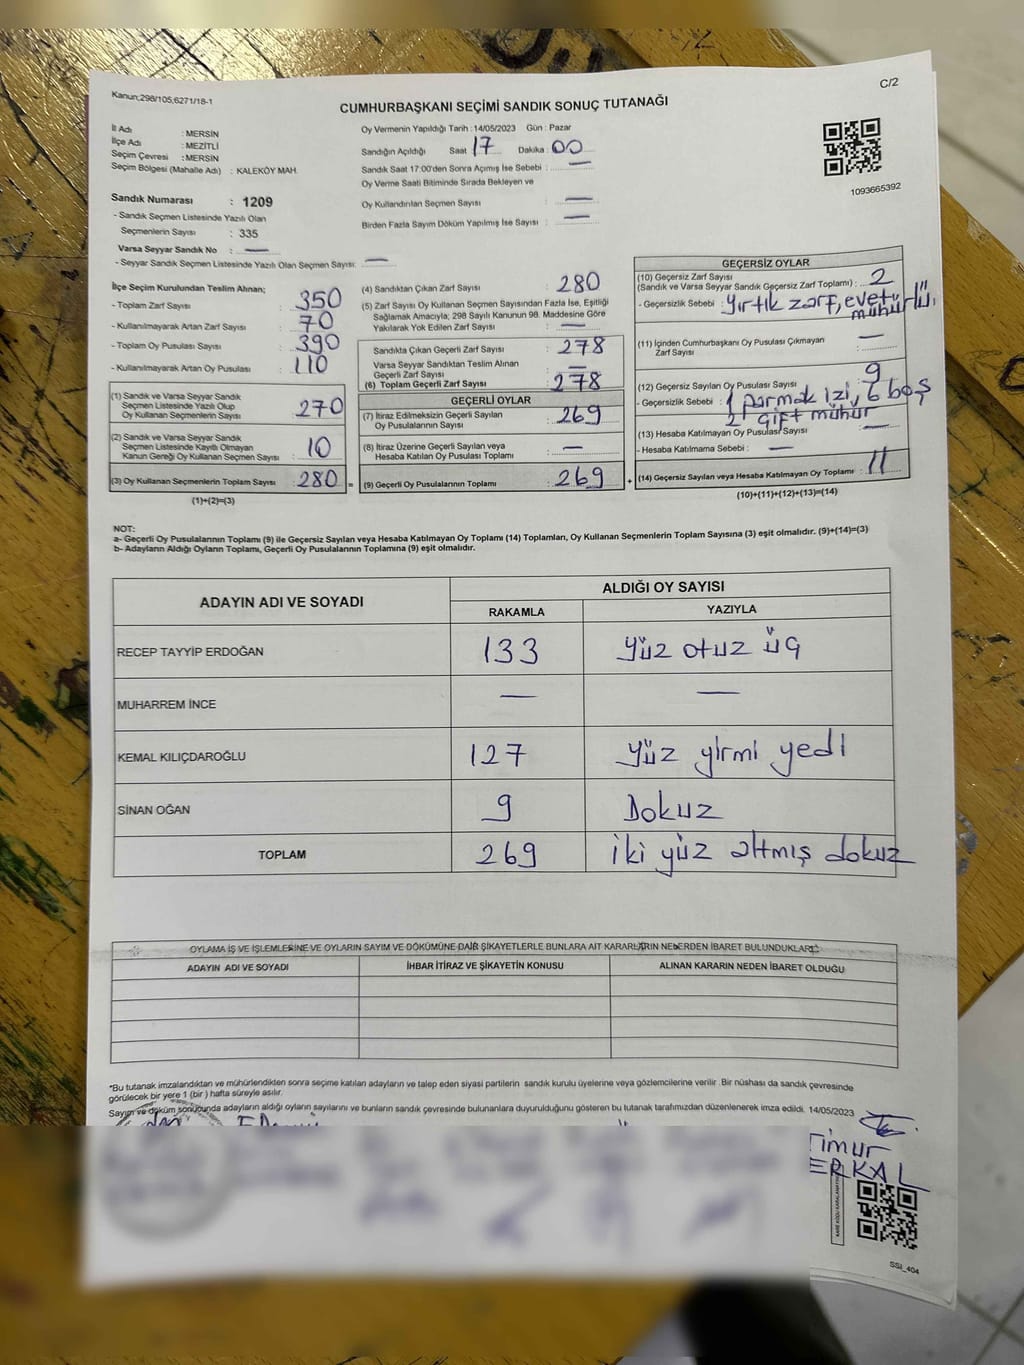 Kanun;298/105,6271/18-1
C/2
CUMHURBAŞKANI SEÇİMİ SANDIK SONUÇ TUTANAĞI
İl Adı : MERSİN
İlçe Adı : MEZİTLİ
Seçim Çevresi : MERSİN
Seçim Bölgesi (Mahalle Adı) : KALEKÖY MAH.
Oy Vermenin Yapıldığı Tarih : 14/05/2023 Gün : Pazar
Sandığın Açıldığı Saat 17 Dakika : 00
Sandık Saat 17:00'den Sonra Açımış İse Sebebi : —
Oy Verme Saati Bitiminde Sırada Bekleyen ve
Oy Kullandırılan Seçmen Sayısı : —
Birden Fazla Sayım Döküm Yapılmış İse Sayısı : —
1093665392
Sandık Numarası : 1209
- Sandık Seçmen Listesinde Yazılı Olan
Seçmenlerin Sayısı : 335
Varsa Seyyar Sandık No : —
- Seyyar Sandık Seçmen Listesinde Yazılı Olan Seçmen Sayısı: —
İlçe Seçim Kurulundan Teslim Alınan;
- Toplam Zarf Sayısı : 350
- Kullanılmayarak Artan Zarf Sayısı : 70
- Toplam Oy Pusulası Sayısı : 390
- Kullanılmayarak Artan Oy Pusulası : 110
(1) Sandık ve Varsa Seyyar Sandık
Seçmen Listesinde Yazılı Olup
Oy Kullanan Seçmenlerin Sayısı : 270
(2) Sandık ve Varsa Seyyar Sandık
Seçmen Listesinde Kayıtlı Olmayan
Kanun Gereği Oy Kullanan Seçmen Sayısı : 10
(3) Oy Kullanan Seçmenlerin Toplam Sayısı : 280 =
(1)+(2)=(3)
(4) Sandıktan Çıkan Zarf Sayısı : 280
(5) Zarf Sayısı Oy Kullanan Seçmen Sayısından Fazla İse, Eşitliği
Sağlamak Amacıyla; 298 Sayılı Kanunun 98. Maddesine Göre
Yakılarak Yok Edilen Zarf Sayısı : —
Sandıkta Çıkan Geçerli Zarf Sayısı : 278
Varsa Seyyar Sandıktan Teslim Alınan
Geçerli Zarf Sayısı : —
(6) Toplam Geçerli Zarf Sayısı : 278
GEÇERLİ OYLAR
(7) İtiraz Edilmeksizin Geçerli Sayılan
Oy Pusulasının Sayısı : 269
(8) İtiraz Üzerine Geçerli Sayılan veya
Hesaba Katılan Oy Pusulası Toplamı : —
(9) Geçerli Oy Pusulalarının Toplamı : 269 +
GEÇERSİZ OYLAR
(10) Geçersiz Zarf Sayısı
(Sandık ve Varsa Seyyar Sandık Geçersiz Zarf Toplamı) : 2
- Geçersizlik Sebebi : Yırtık zarf, evet
mühürlü.
(11) İçinden Cumhurbaşkanı Oy Pusulası Çıkmayan
Zarf Sayısı : —
(12) Geçersiz Sayılan Oy Pusulası Sayısı : 9
- Geçersizlik Sebebi : 1 parmak izi, 6 boş
2 çift mühür
(13) Hesaba Katılmayan Oy Pusulası Sayısı : —
- Hesaba Katılmama Sebebi : —
(14) Geçersiz Sayılan veya Hesaba Katılmayan Oy Toplamı : 11
(10)+(11)+(12)+(13)=(14)
NOT:
a- Geçerli Oy Pusulalarının Toplamı (9) ile Geçersiz Sayılan veya Hesaba Katılmayan Oy Toplamı (14) Toplamları, Oy Kullanan Seçmenlerin Toplam Sayısına (3) eşit olmalıdır. (9)+(14)=(3)
b- Adayların Aldığı Oyların Toplamı, Geçerli Oy Pusulalarının Toplamına (9) eşit olmalıdır.
ADAYIN ADI VE SOYADI
ALDIĞI OY SAYISI
RAKAMLA YAZIYLA
RECEP TAYYİP ERDOĞAN 133 Yüz otuz üç
MUHARREM İNCE — —
KEMAL KILIÇDAROĞLU 127 Yüz yirmi yedi
SİNAN OĞAN 9 Dokuz
TOPLAM 269 iki yüz altmış dokuz
OYLAMA İŞ VE İŞLEMLERİNE VE OYLARIN SAYIM VE DÖKÜMÜNE DAİR ŞİKAYETLERLE BUNLARA AİT KARARLARIN NELERDEN İBARET BULUNDUKLARI
ADAYIN ADI VE SOYADI İHBAR İTİRAZ VE ŞİKAYETİN KONUSU ALINAN KARARIN NEDEN İBARET OLDUĞU
*Bu tutanak imzalandıktan ve mühürlendikten sonra seçime katılan adayların ve talep eden siyasi partilerin sandık kurulu üyelerine veya gözlemcilerine verilir .Bir nüshası da sandık çevresinde
görülecek bir yere 1 (bir ) hafta süreyle asılır.
Sayım ve döküm sonucunda adayların aldığı oyların sayılarını ve bunların sandık çevresinde bulunanlara duyurulduğunu gösteren bu tutanak tarafımızdan düzenlenerek imza edildi. 14/05/2023
Timur
ERKAL
SSI_404